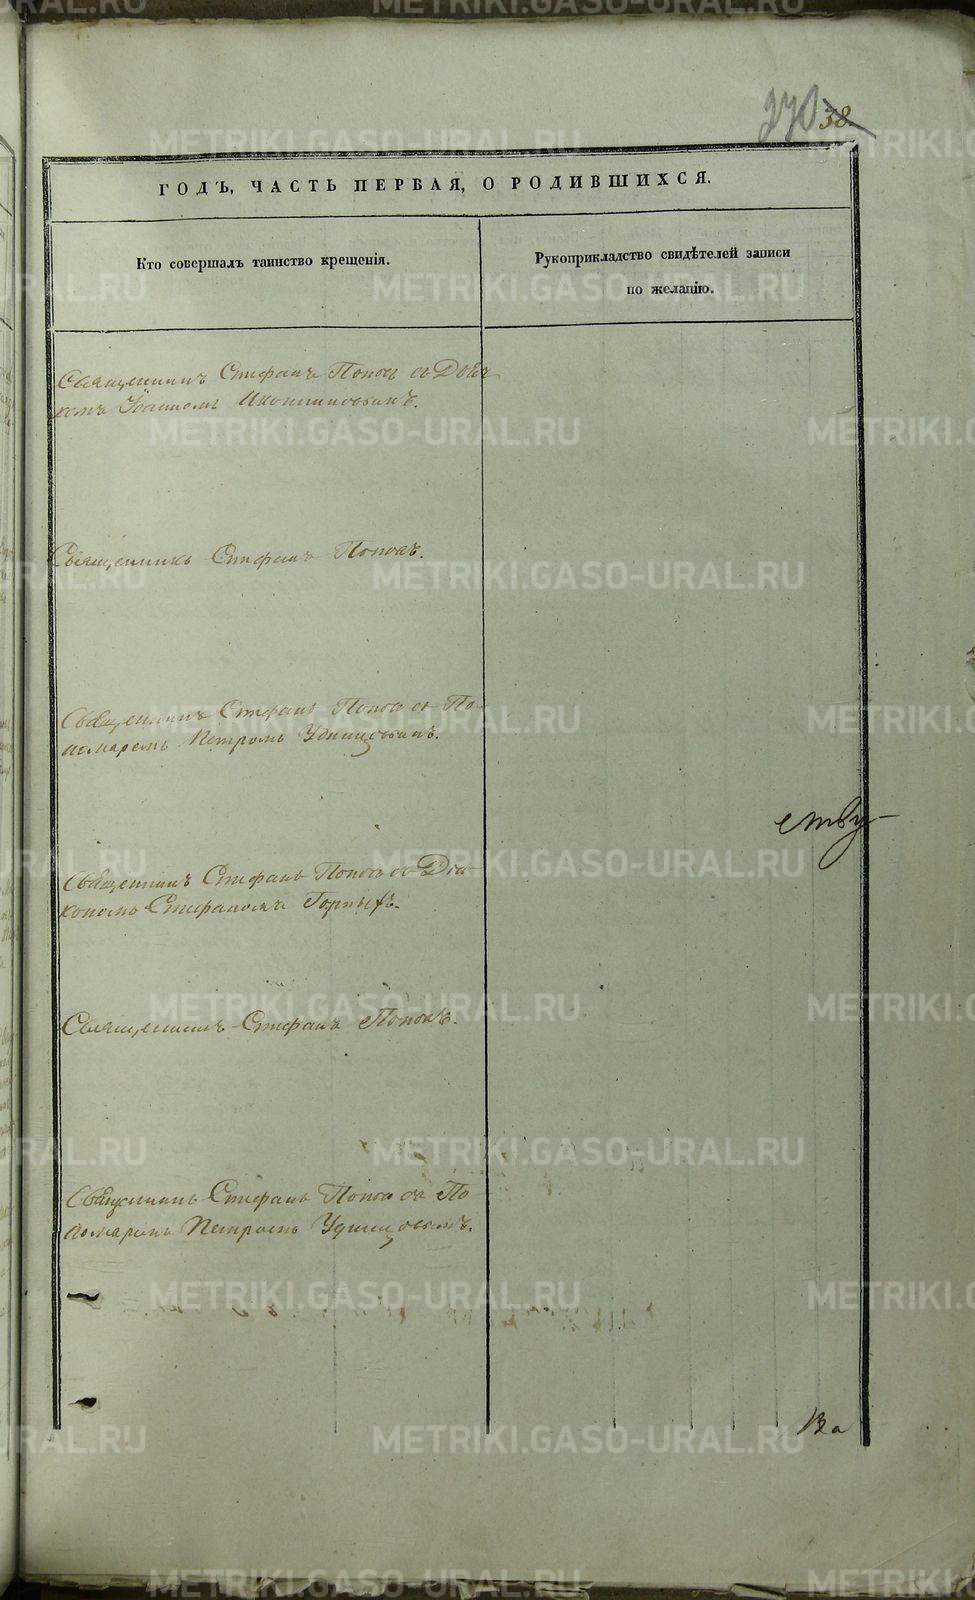 270 38.
ГОДЪ, ЧАСТЬ ПЕРВАЯ, О РОДИВШИХСЯ.
Кто совершалъ таинство крещенія.
Рукоприкладство свидѣтелей записи
по желанію.
Священникъ Стефанъ Поповъ съ
Священникъ Стефанъ Поповъ.
Священникъ Стефанъ Поповъ съ По-
номаремъ Петромъ Удинцовымъ.
Священникъ Стефанъ Поповъ съ Діа-
кономъ Стефаномъ Горныхъ.
ству-
Священникъ Стефанъ Поповъ.
Священникъ Стефанъ Поповъ съ По
номаремъ Петромъ Удинцовымъ.
METRIKI.GASO-URAL.RU